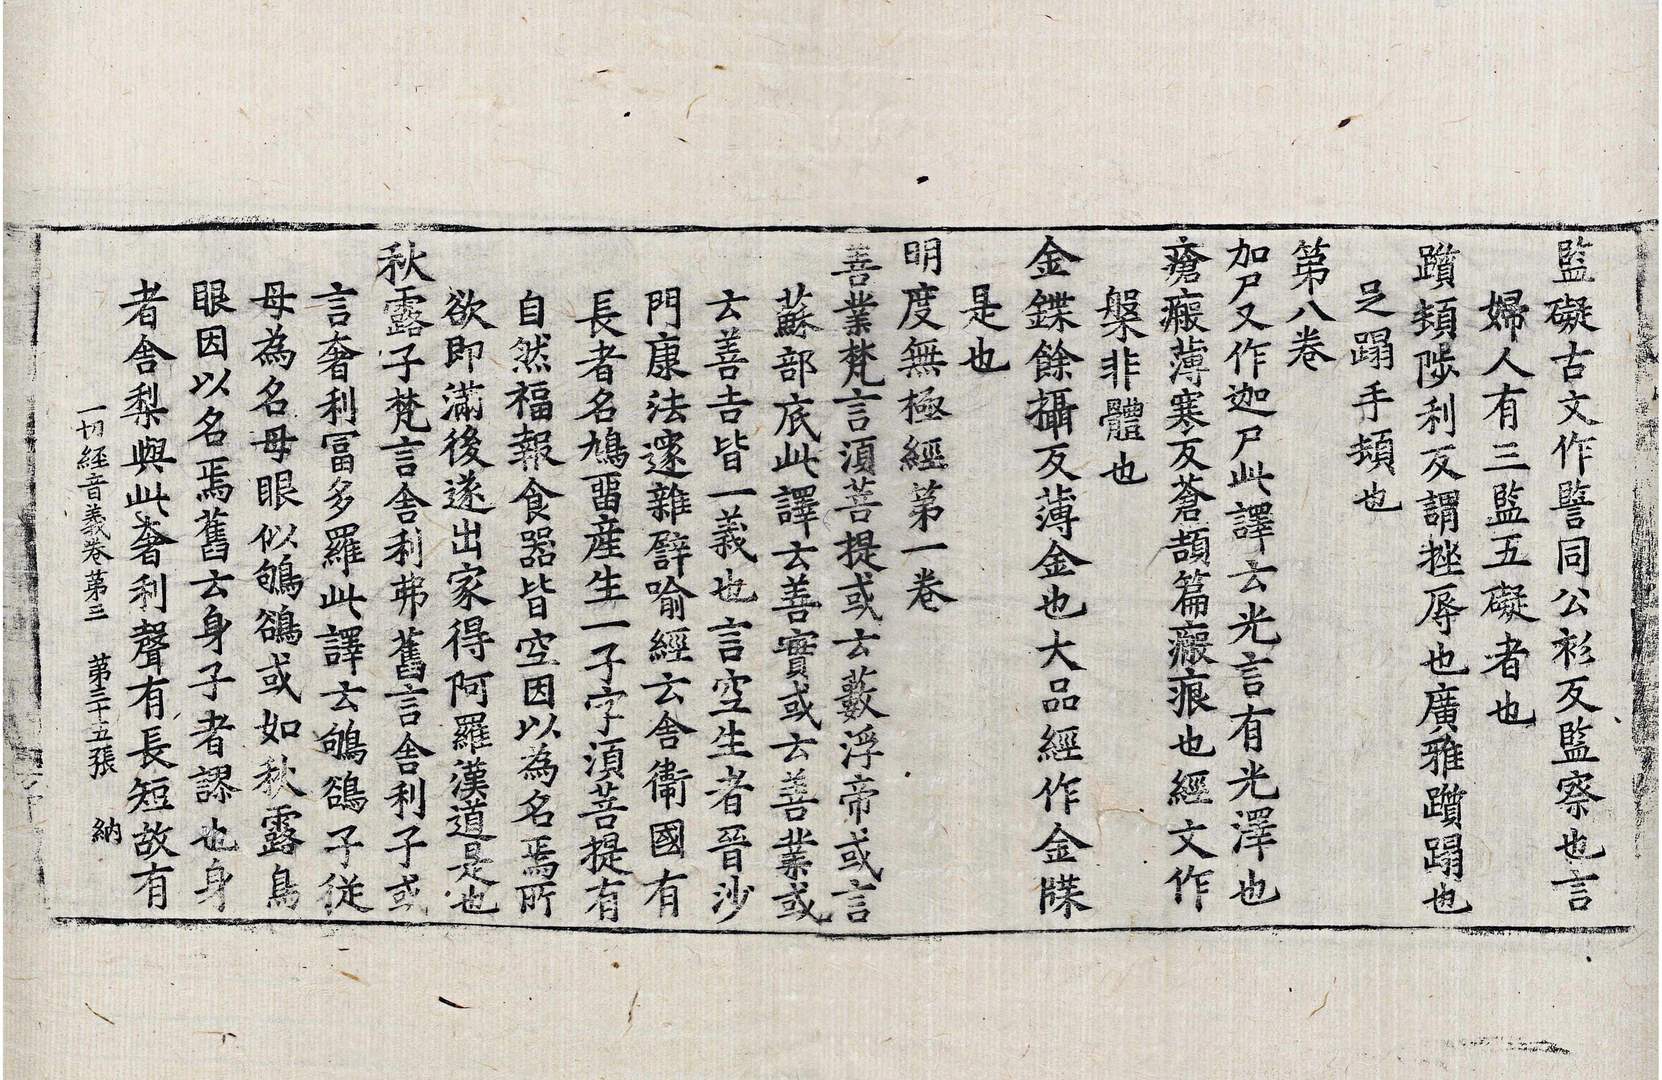 監礙古文作譼同公衫反監察也言
婦人有三監五礙者也
躓頻陟利反謂挫辱也廣雅躓蹋也
足蹋手頻也
第八卷
加尸又作迦尸此譯云光言有光澤也
瘡瘢薄寒反蒼頡篇瘢痕也經文作
槃非體也
金鍱餘攝反薄金也大品經作金牒
是也
明度無極經第一卷
善業梵言須菩提或云藪浮帝或言
蘇部底此譯云善實或云善業或
云善吉皆一義也言空生者晉沙
門康法邃雜譬喻經云舍衛國有
長者名鳩留產生一子字須菩提有
自然福報食器皆空因以為名焉所
欲即滿後遂出家得阿羅漢道是也
秋露子梵言舍利弗舊言舍利子或
言奢利富多羅此譯云鴝鵒子從
母為名母眼似鴝鵒或如秋露鳥
眼因以名焉舊云身子者謬也身
者舍梨與此奢利聲有長短故有
一切經音義卷第三　第三十五張　納